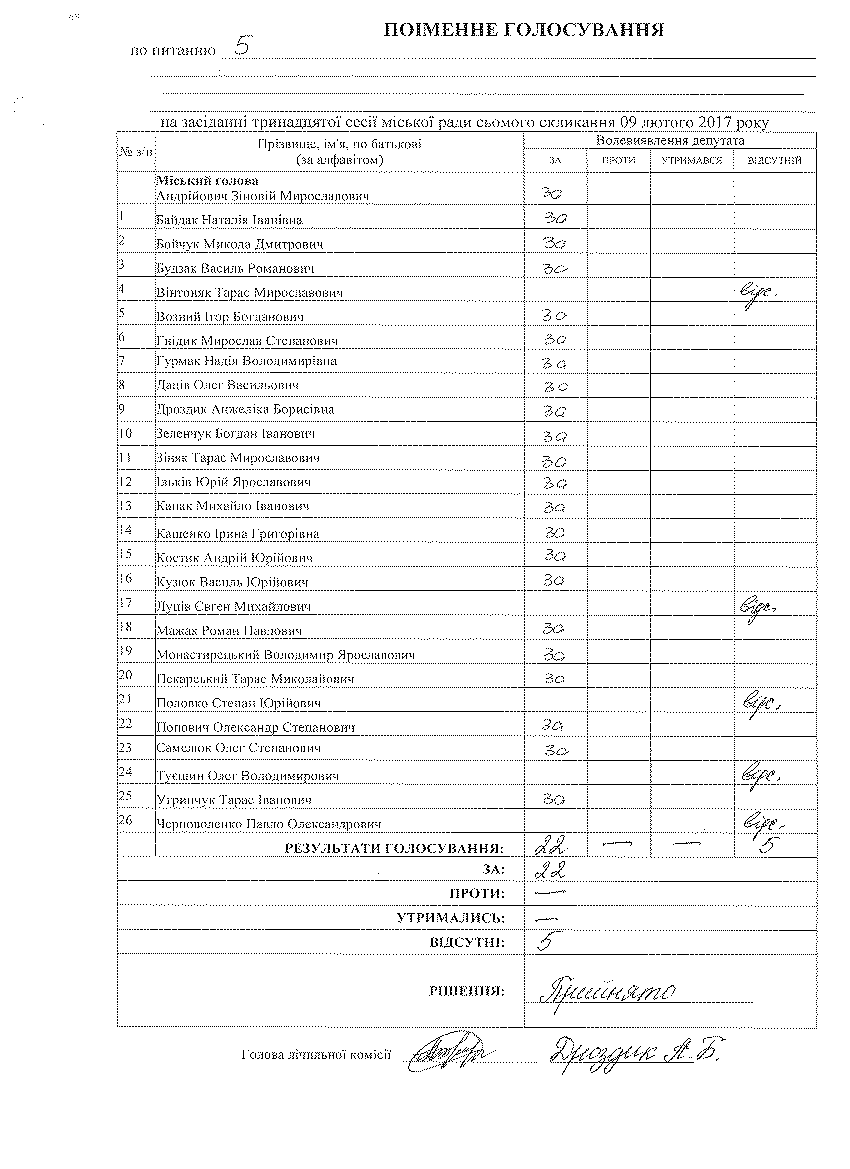 ПОІМЕННЕ ГОЛОСУВАННЯ
по питанню 5
на засіданні тринадцятої сесії міської ради сьомого скликання 09 лютого 2017 року
№ з/п Прізвище, ім'я, по батькові (за алфавітом) Волевиявлення депутата
ЗА ПРОТИ УТРИМАВСЯ ВІДСУТНІЙ
Міський голова
Андрійович Зіновій Мирославович за
1 Байдак Наталія Іванівна за
2 Бойчук Микола Дмитрович за
3 Будзак Василь Романович за
4 Вінтоняк Тарас Мирославович відс.
5 Возний Ігор Богданович за
6 Гнідик Мирослав Степанович за
7 Гурмак Надія Володимирівна за
8 Даців Олег Васильович за
9 Дроздик Анжеліка Борисівна за
10 Зеленчук Богдан Іванович за
11 Зіняк Тарас Мирославович за
12 Ільків Юрій Ярославович за
13 Капак Михайло Іванович за
14 Кащенко Ірина Григорівна за
15 Костик Андрій Юрійович за
16 Кузюк Василь Юрійович за
17 Луців Євген Михайлович відс.
18 Мажак Роман Павлович за
19 Монастирецький Володимир Ярославович за
20 Пекарський Тарас Миколайович за
21 Половко Степан Юрійович відс.
22 Попович Олександр Степанович за
23 Самелюк Олег Степанович за
24 Туєшин Олег Володимирович відс.
25 Угринчук Тарас Іванович за
26 Черноволенко Павло Олександрович відс.
РЕЗУЛЬТАТИ ГОЛОСУВАННЯ: 22 — — 5
ЗА: 22
ПРОТИ: —
УТРИМАЛИСЬ: —
ВІДСУТНІ: 5
РІШЕННЯ: Прийнято
Голова лічильної комісії Дроздик А. Б.